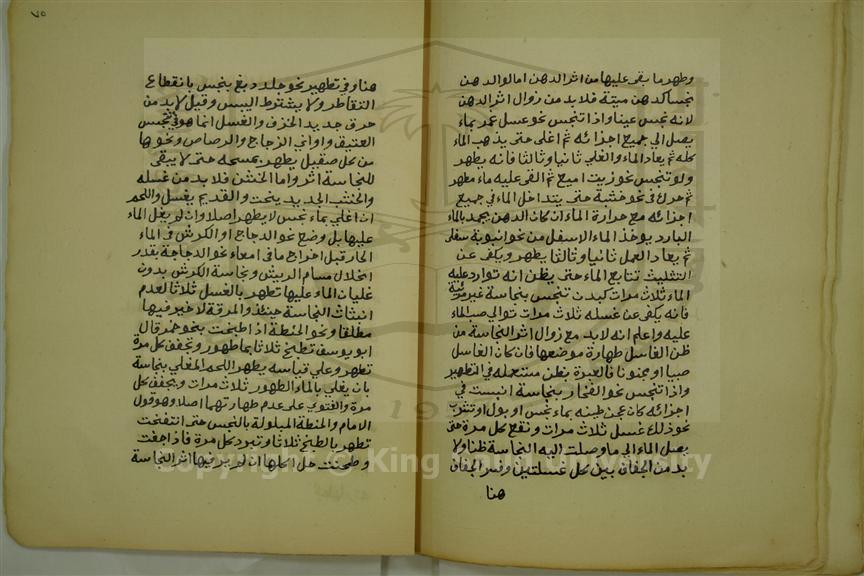 وطهر ما بقى عليها من اثر الدهن اما لو الدهن
نجسا كدهن ميتة فلا بد من زوال اثر الدهن
لانه نجس عينا واذا تنجس نحو عسل غمر بماء
يصل الى جميع اجزائه ثم اغلى حتى يذهب الماء
كله ثم يعاد الماء والغلي ثانيا وثالثا فانه يطهر
ولو تنجس نحو زيت اميع ثم القى عليه ماء مطهر
ثم حرك في نحو خشبة حتى يتداخل الماء في جميع
اجزائه مع حرارة الماء ان كان الدهن يجمد بالماء
البارد يوخذ الماء الاسفل من نحو انبوبة سفلى
ثم يعاد العمل ثانيا وثالثا يطهر ويكفى عن
التثليث تتابع الماء حتى يظن انه توارد عليه
الماء ثلاث مرات كبدن تنجس بنجاسة غير مرئية
فانه يكفى عن غسله ثلاث مرات توالى صب الماء
عليه واعلم انه لابد مع زوال اثر النجاسة من
ظن الغاسل طهارة موضعها فان كان الغاسل
صبيا او مجنونا فالعبرة بظن مستعمله في التطهير
واذا تنجس نحو الفخار بنجاسة انبست في
اجزائه كان عجن طينه بماء نجس او بول او تشرب
نحو ذلك غسل ثلاث مرات ونقع كل مرة حتى
يصل الماء الى ما وصلت اليه النجاسة ظنا ولا
بد من الجفاف بين كل غسلتين وفسر الجفاف
هنا
٧٥
هنا وفي تطهير نحو جلد دبغ بنجس بانقطاع
التقاطر ولا يشترط اليبس وقيل لا بد من
حرق جديد الخزف والغسل انما هو في تنجس
العتيق واواني الزجاج والرصاص ونحوها
من كل صقيل يطهر بمسحه حتى لا يبقى
للنجاسة اثر واما الخشن فلا بد من غسله
والخشب الجديد ينحت والقديم يغسل واللحم
ان اغلي بماء نجس لا يطهر اصلا وان لم يغل الماء
عليها بل وضع نحو الدجاج او الكرش في الماء
الحار قبل اخراج ما في امعاء نحو الدجاجة بقدر
انحلال مسام الريش ونجاسة الكرش بدون
غليان الماء عليها تطهر بالغسل ثلاثا لعدم
انبثاث النجاسة حينئذ والمرقة لا خير فيها
مطلقا ونحو الحنطة اذا طبخت بنحو خمر قال
ابو يوسف تطبخ ثلاثا بماء طهور وتجفف كل مرة
تطهر وعلى قياسه يطهر اللحم المغلي بنجاسة
بان يغلي بالماء الطهور ثلاث مرات ويجفف كل
مرة والفتوى على عدم طهارتهما اصلا وهو قول
الامام والحنطة المبلولة بالنجس حتى انتفخت
تطهر بالطبخ ثلاثا وتبرد كل مرة فاذا جفت
وطحنت حل اكلها ان لم ير فيها اثر النجاسة
Copyright © King Saud University